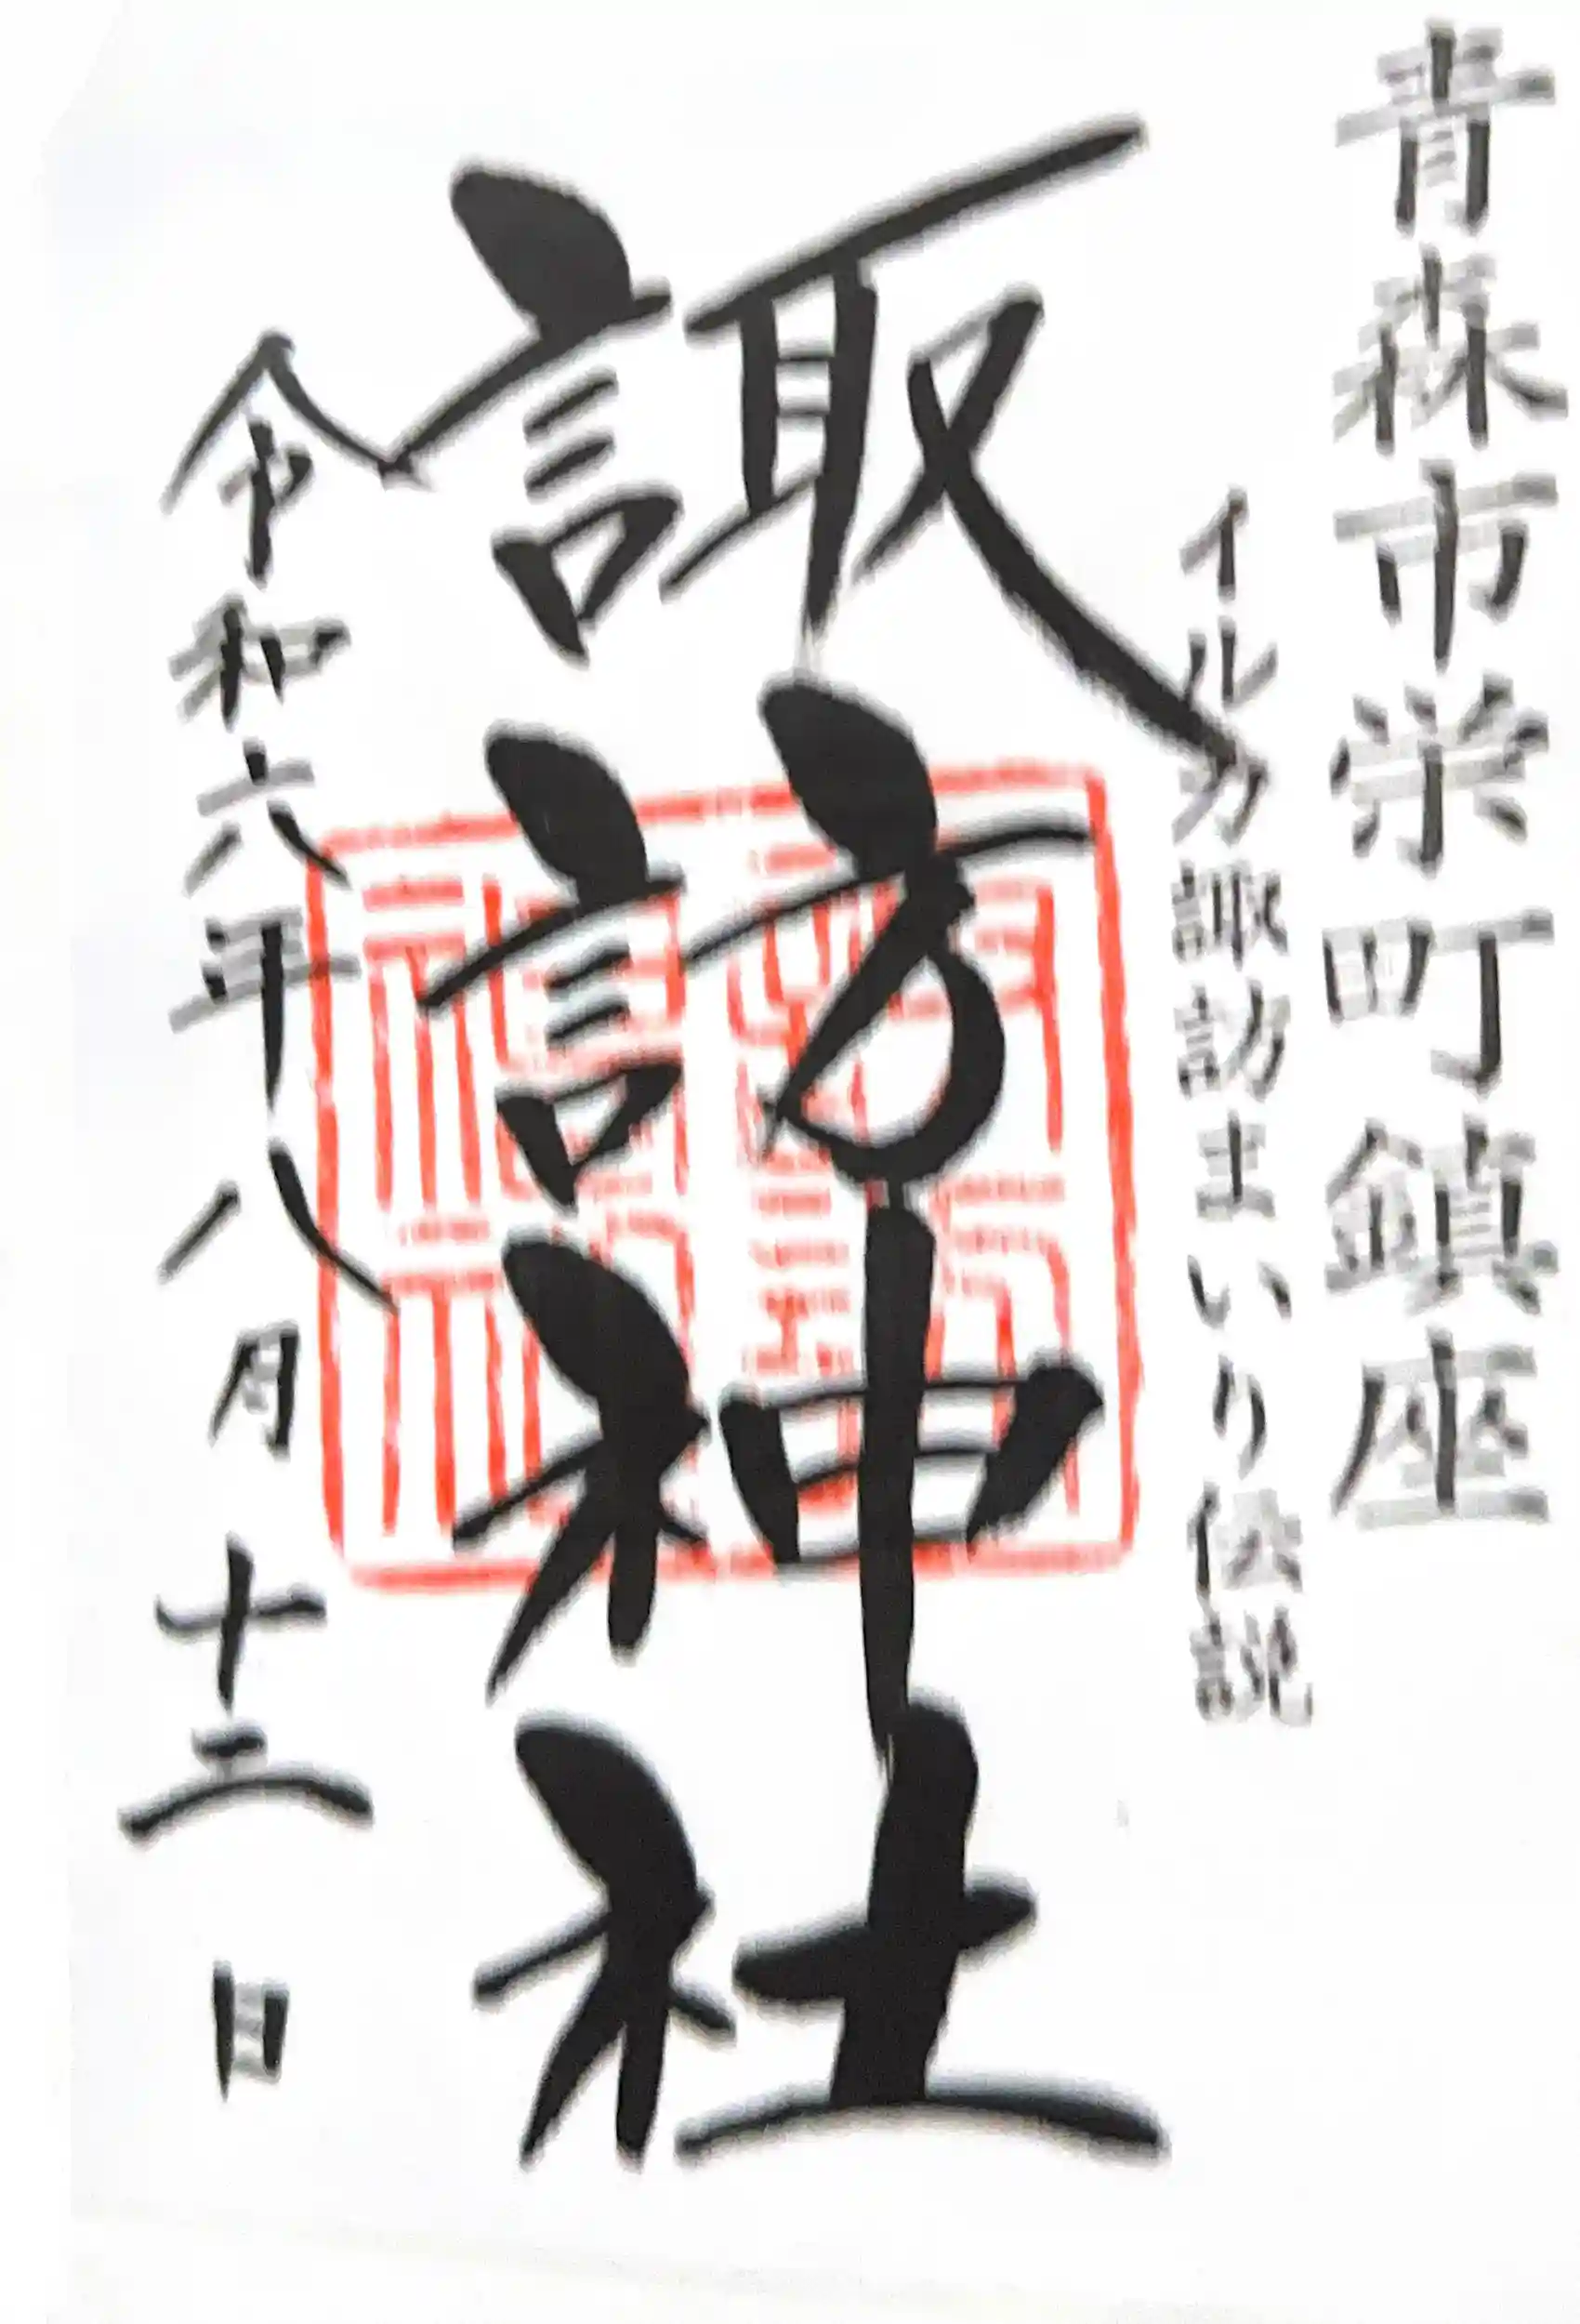 青森市栄町鎮座
イルカ諏訪まいり伝説
諏訪神社
令和六年八月十三日